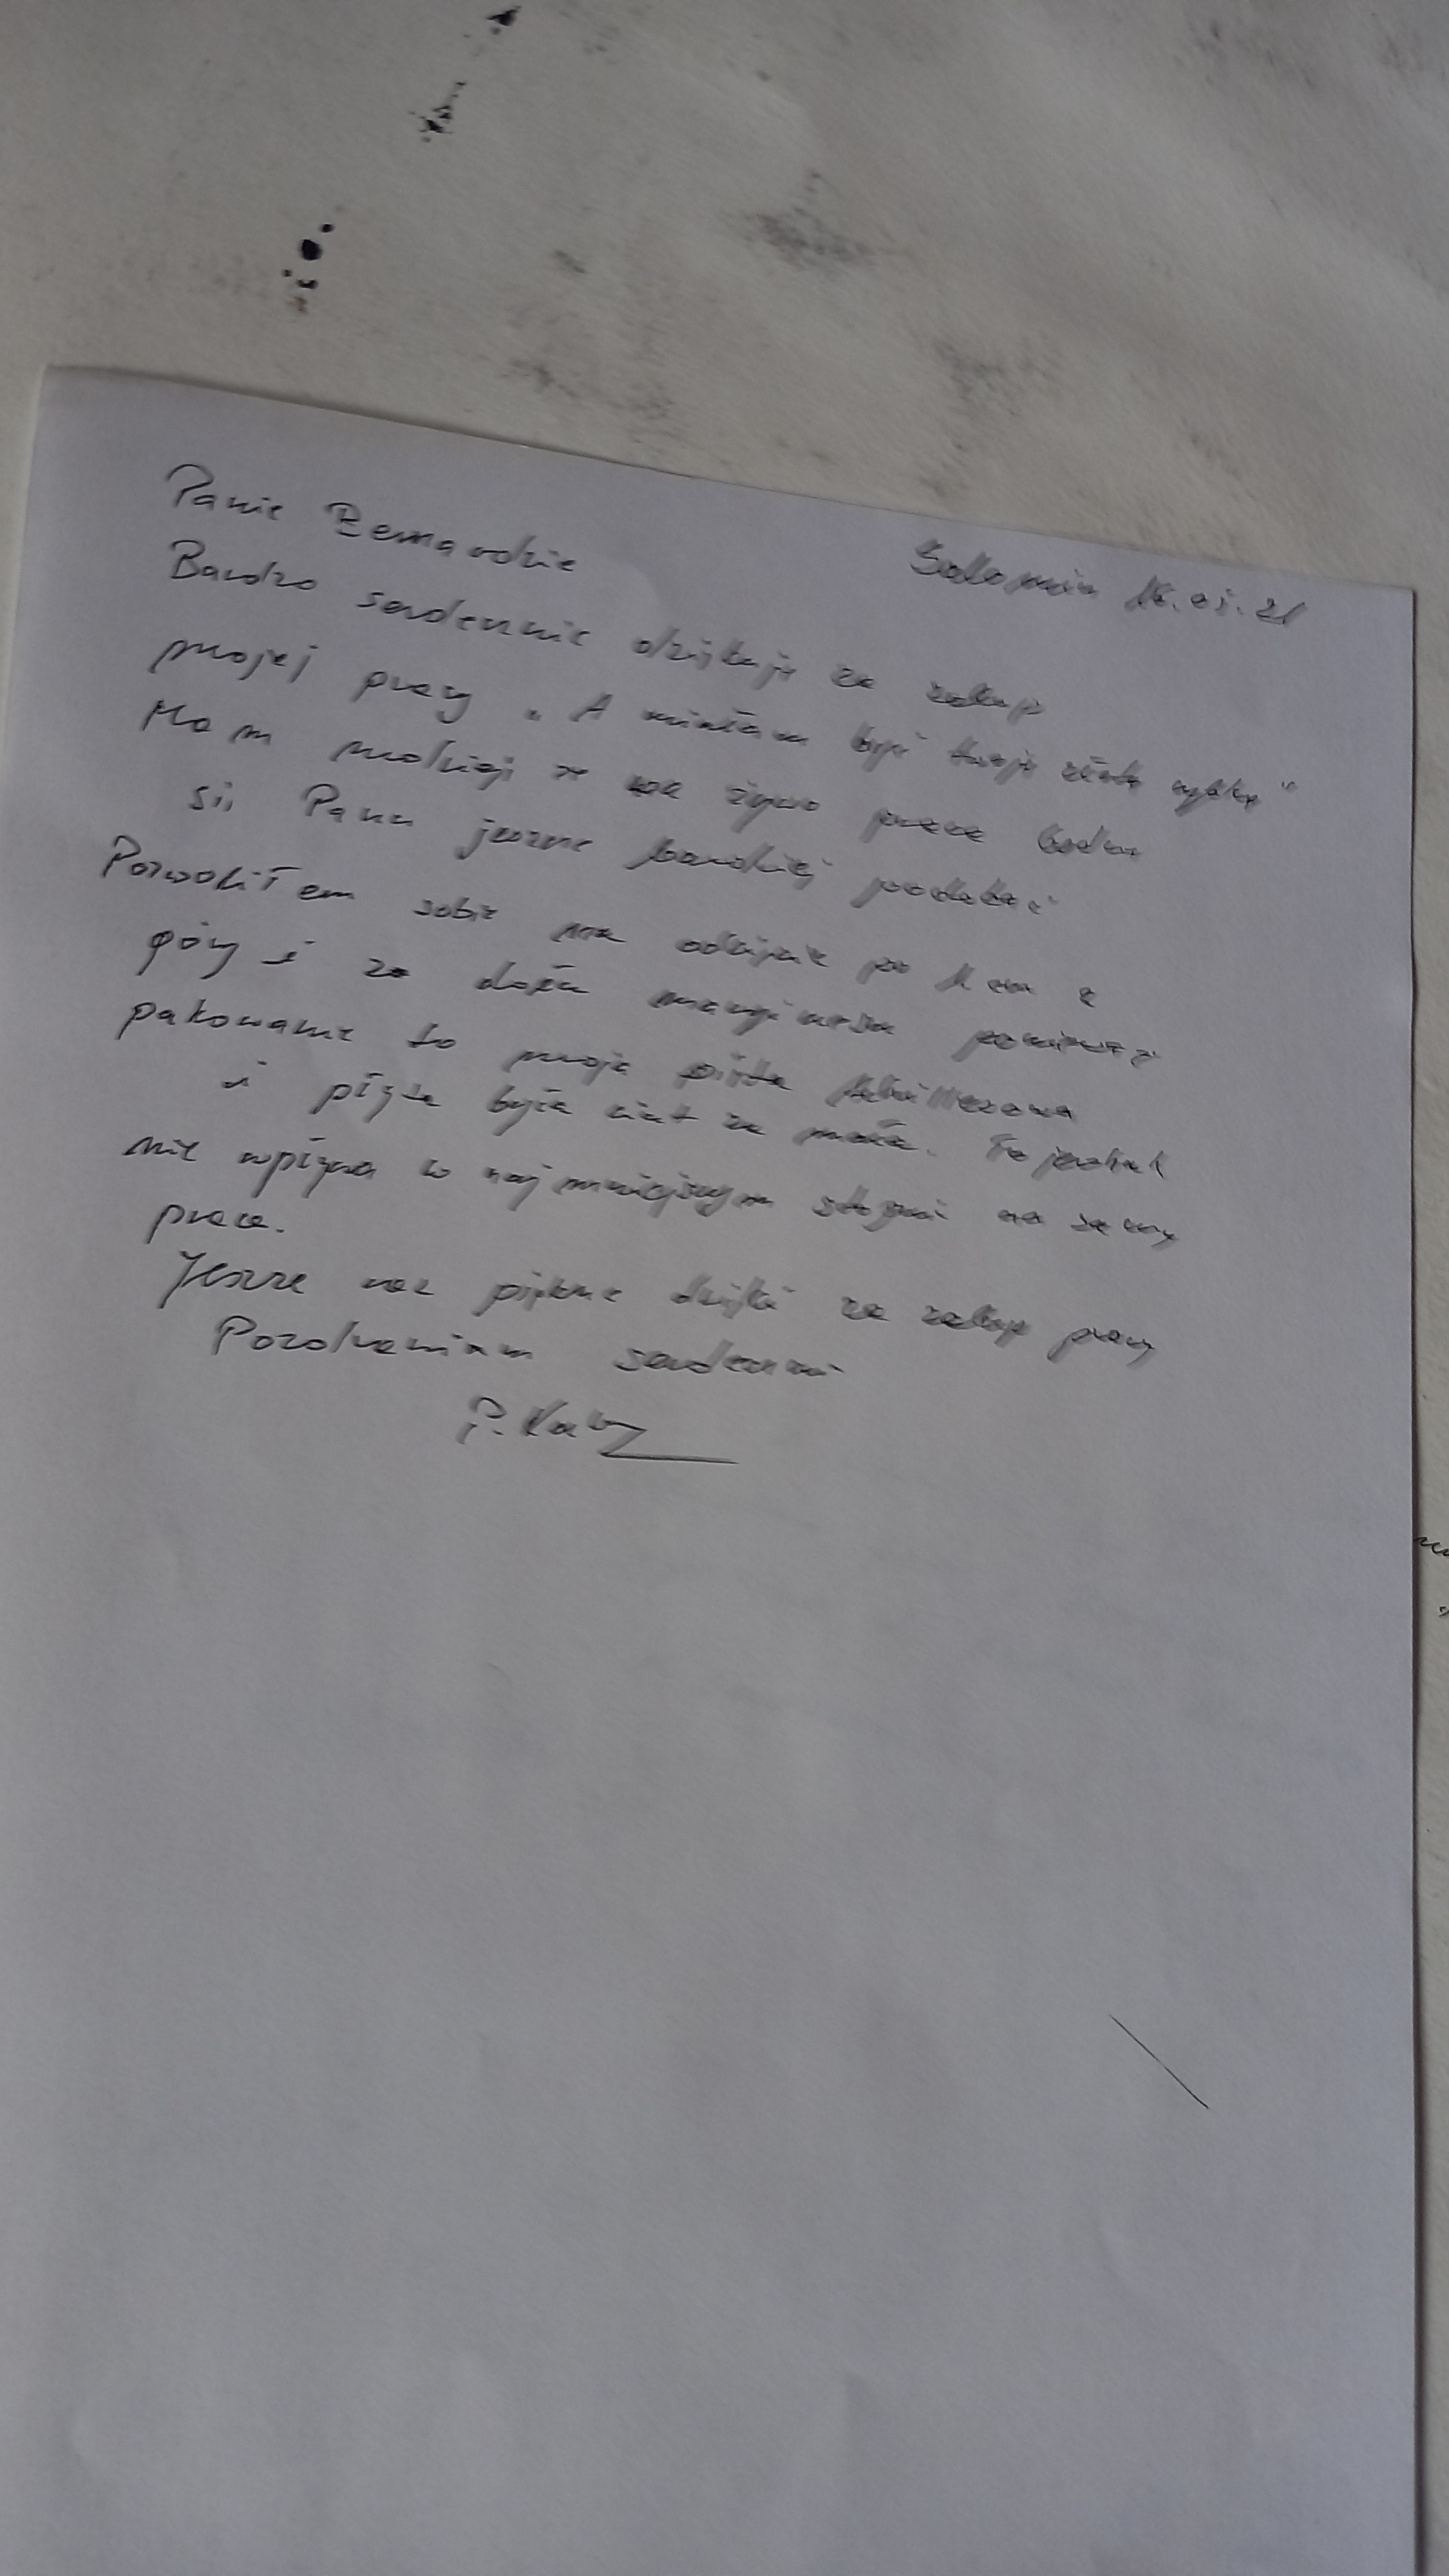 Sadomin 16.05.21
Panie Bernardzie
Bardzo serdecznie dziękuję za zakup
mojej pracy „A miałam być twoją złotą rybką"
Mam nadzieję że na żywo praca będzie
się Panu jeszcze bardziej podobać
Pozwoliłem sobie na odcięcie po 1 cm z
góry i z dołu marginesu ponieważ
pakowanie to moja pięta Achillesowa
i płyta była ciut za mała. To jednak
nie wpływa w najmniejszym stopniu na samą
pracę.
Jeszcze raz piękne dzięki za zakup pracy
Pozdrawiam serdecznie
P. Kam